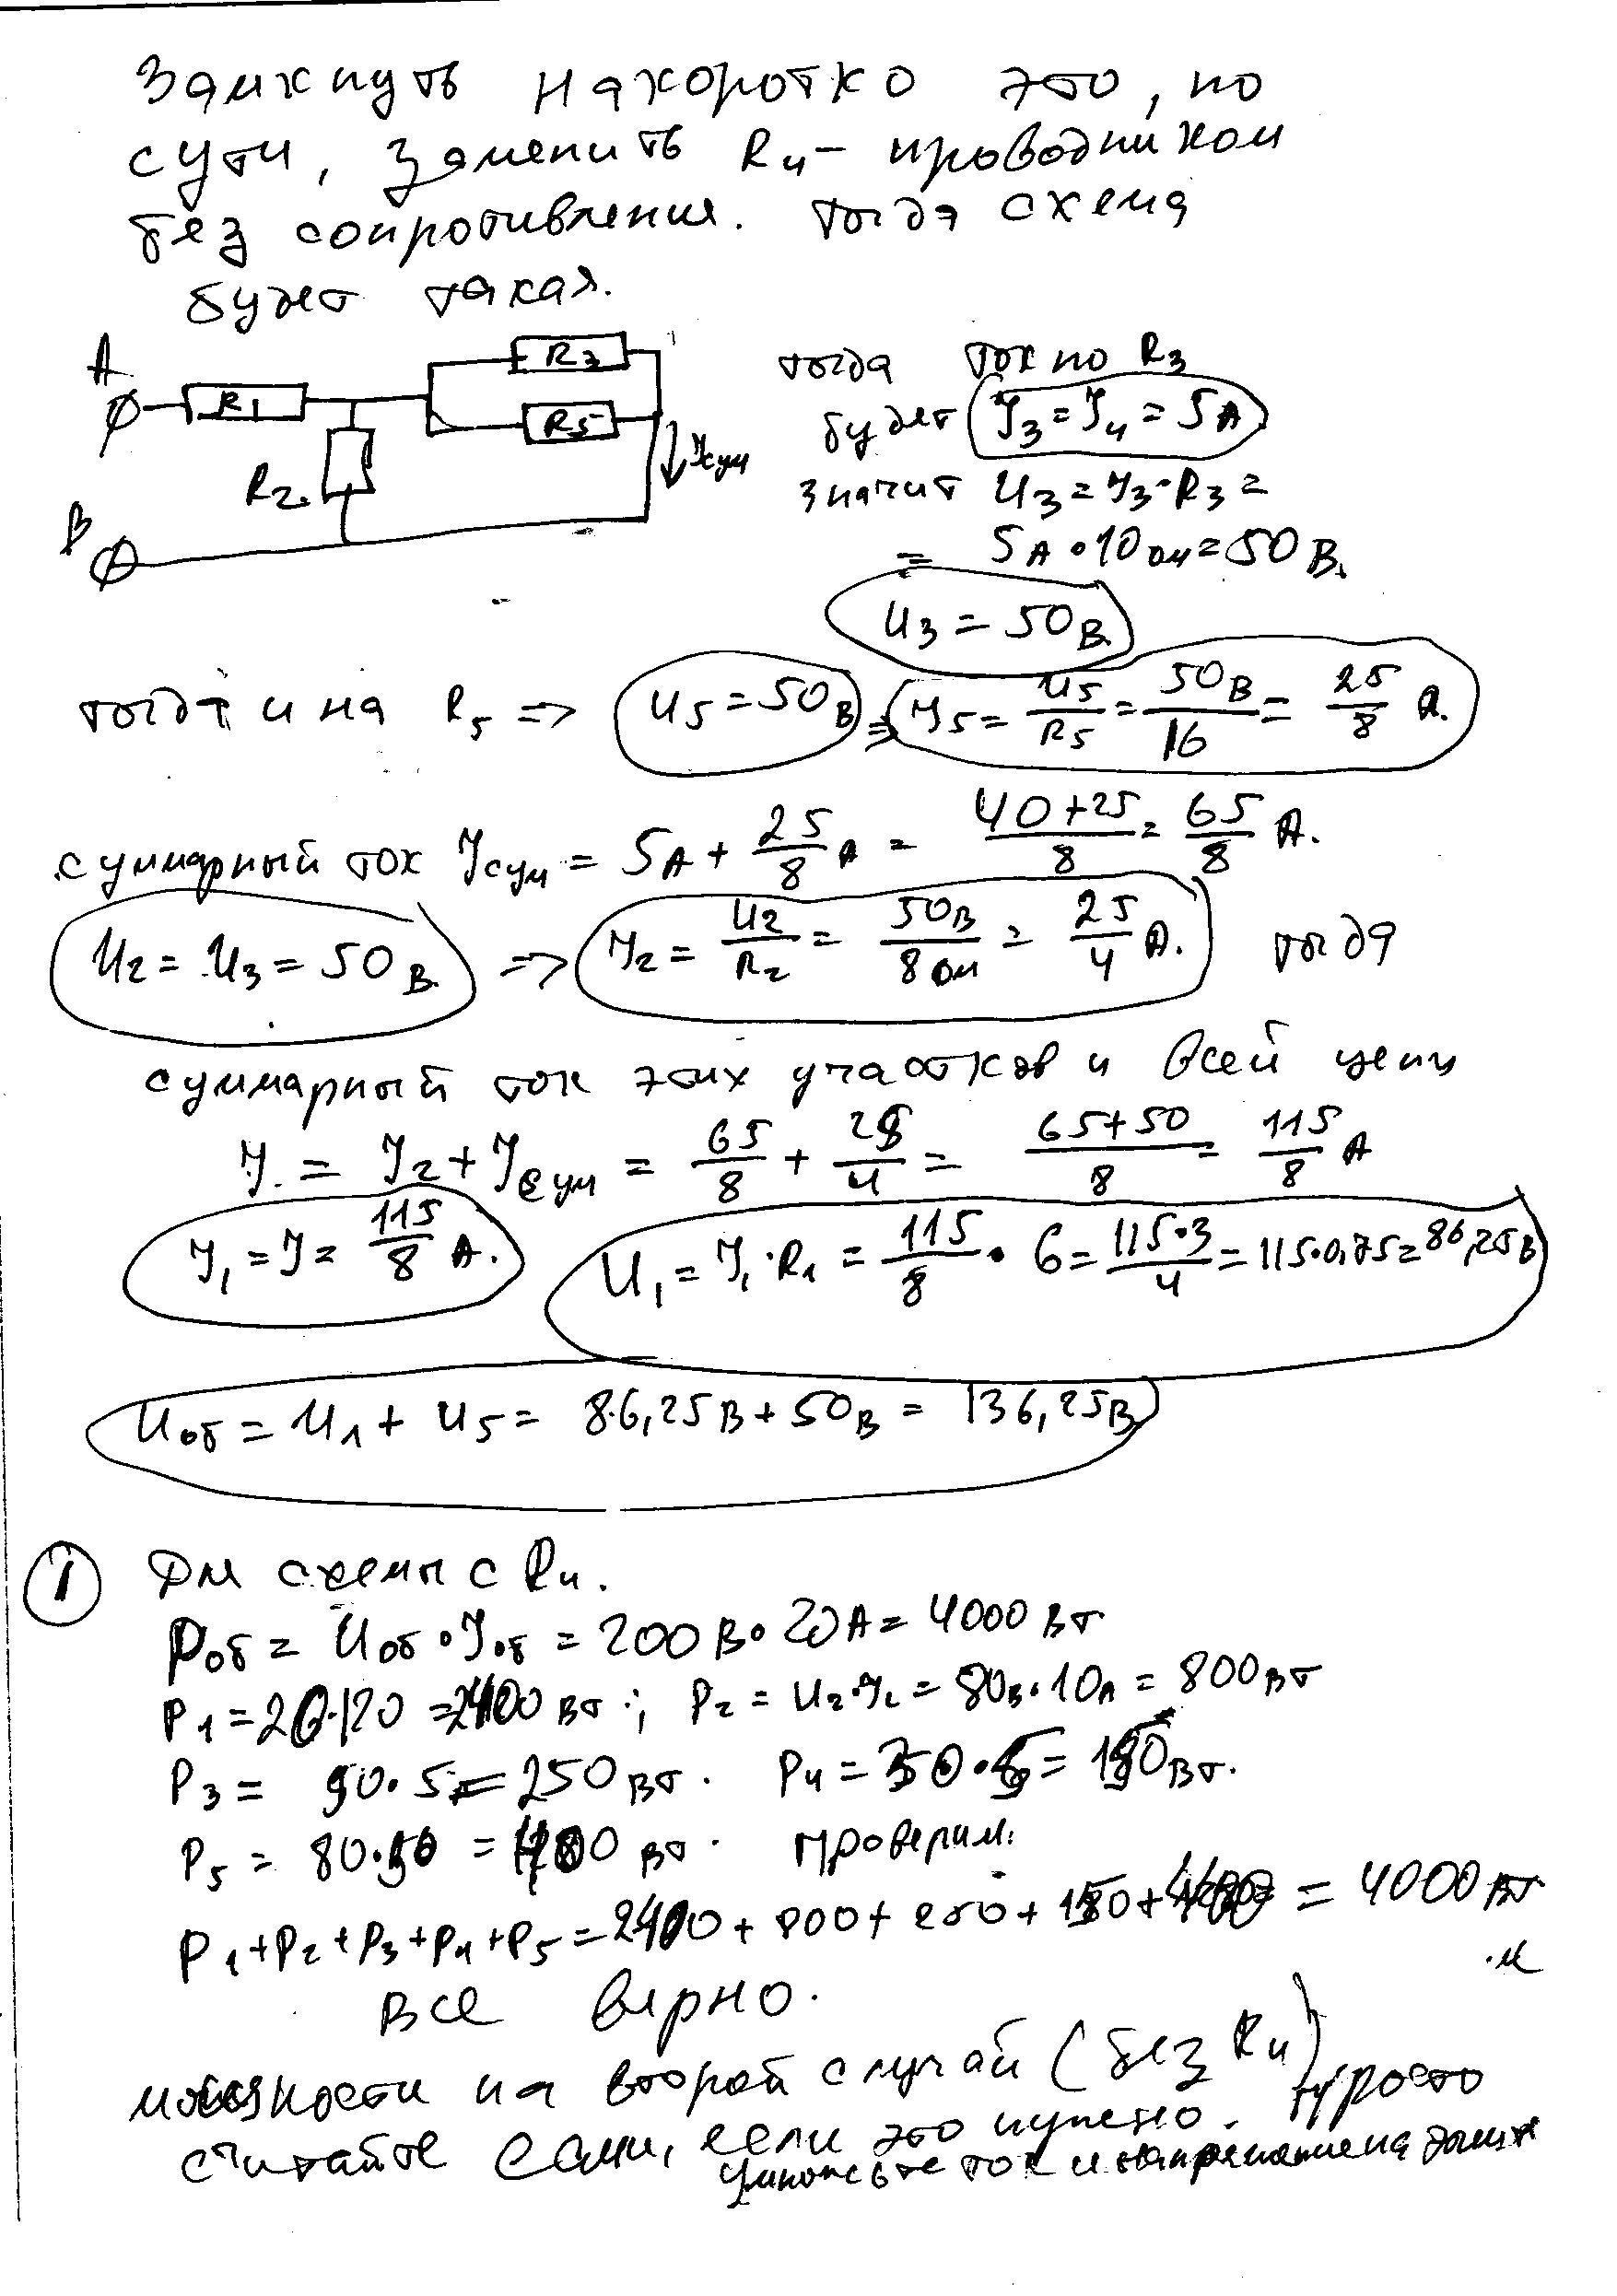 Замкнуть накоротко это, по
сути, заменить R4 - проводником
без сопротивления. тогда схема
будет такая.
A
R1
R3
R5
R2.
B
Iсум
тогда ток по R3
будет I3 = I4 = 5A
значит U3 = I3 · R3 =
= 5A · 10 ом = 50 В.
U3 = 50 В.
тогда и на R5 => U5 = 50 В => I5 = U5/R5 = 50В/16 = 25/8 A.
суммарный ток Iсум = 5A + 25/8 A = (40+25)/8 = 65/8 A.
U2 = U3 = 50 В. => I2 = U2/R2 = 50В/8 ом = 25/4 A. тогда
суммарный ток этих участков и всей цепи
I = I2 + Iсум = 65/8 + 25/4 = (65+50)/8 = 115/8 A
I1 = I = 115/8 A. U1 = I1 · R1 = 115/8 · 6 = 115·3/4 = 115·0,75 = 86,25 В
Uоб = U1 + U5 = 86,25 В + 50 В = 136,25 В
1 Для схемы с R4.
Pоб = Uоб · Iоб = 200 В · 20 A = 4000 Вт
P1 = 20·120 = 2400 Вт; P2 = U2·I2 = 80В·10A = 800 Вт
P3 = 50·5 = 250 Вт. P4 = 30·5 = 150 Вт.
P5 = 80·5 = 400 Вт. проверим:
P1+P2+P3+P4+P5 = 2400 + 800 + 250 + 150 + 400 = 4000 Вт
все верно.
мощности на второй случай (без R4)
считайте сами, если это нужно. просто
умножьте ток и напряжение на